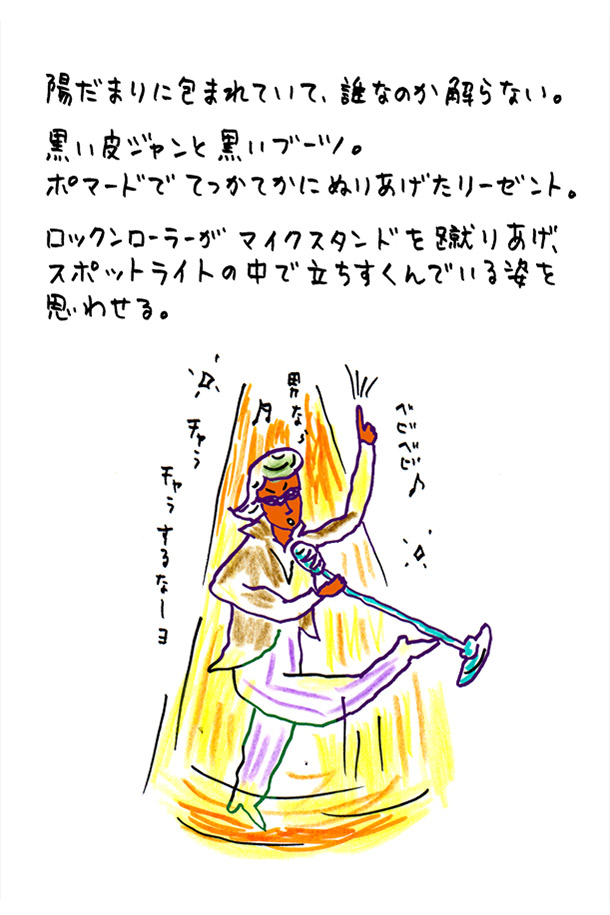 陽だまりに包まれていて、誰なのか解らない。
黒い皮ジャンと黒いブーツ。
ポマードでてっかてかにぬりあげたリーゼント。
ロックンローラーがマイクスタンドを蹴りあげ、
スポットライトの中で立ちすくんでいる姿を
思わせる。
男なら
チャラ
チャラするなーヨ
ベビベビ♪